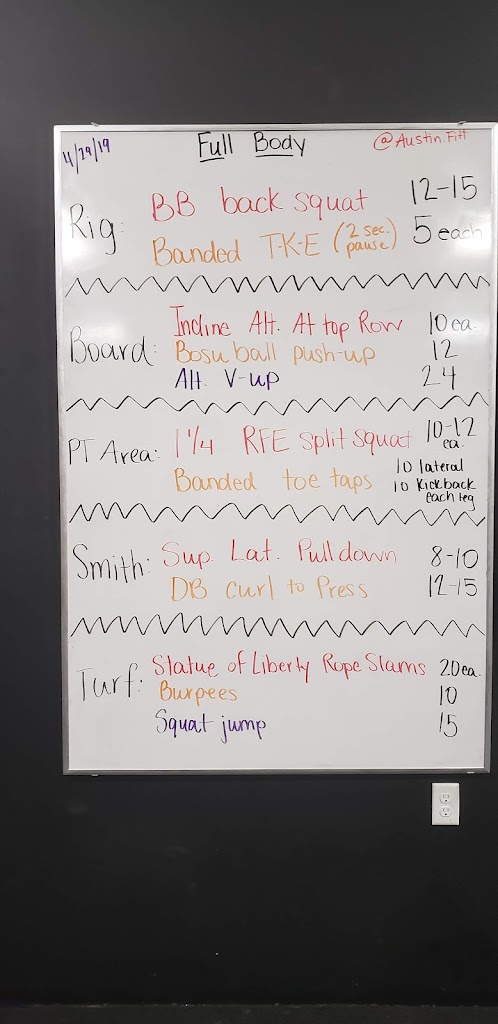 4/29/19 Full Body @Austin.Fitt
Rig: BB back squat 12-15
Banded T-K-E (2 sec. pause) 5 each
Board: Incline Alt. At top Row 10 ea.
Bosu ball push-up 12
Alt. V-up 24
PT Area: 1 1/4 RFE split squat 10-12 ea.
Banded toe taps 10 lateral
10 Kickback
each leg
Smith: Sup. Lat. Pulldown 8-10
DB curl to Press 12-15
Turf: Statue of Liberty Rope Slams 20 ea.
Burpees 10
Squat jump 15